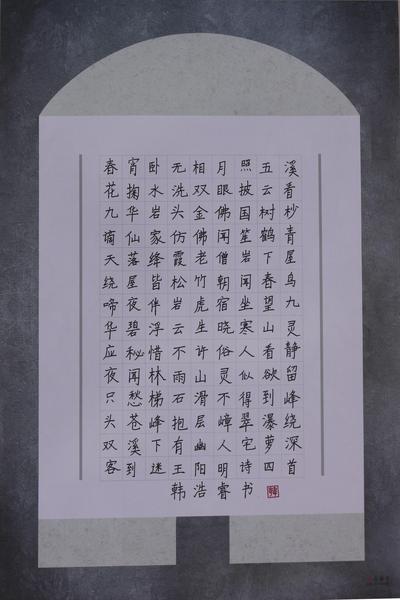 春宵卧无相月照五溪
花掬水洗双眼披云看
九华岩头金佛国树杪
谪仙家仿佛闻笙鹤青
天落绛霞老僧岩下屋
绕屋皆松竹朝闻春鸟
啼夜伴岩虎宿坐望九
华碧浮云生晓寒山灵
应秘惜不许俗人看静
夜闻林雨山灵似欲留
只愁梯石滑不得到峰
头苍峰抱层嶂翠瀑绕
双溪下有幽人宅萝深
客到迷王阳明诗四首
韩浩睿书